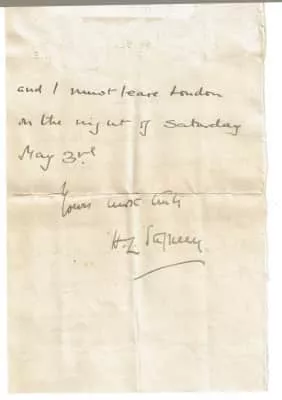 and I must leave London
on the night of Saturday
May 3rd
Yours most truly
H.